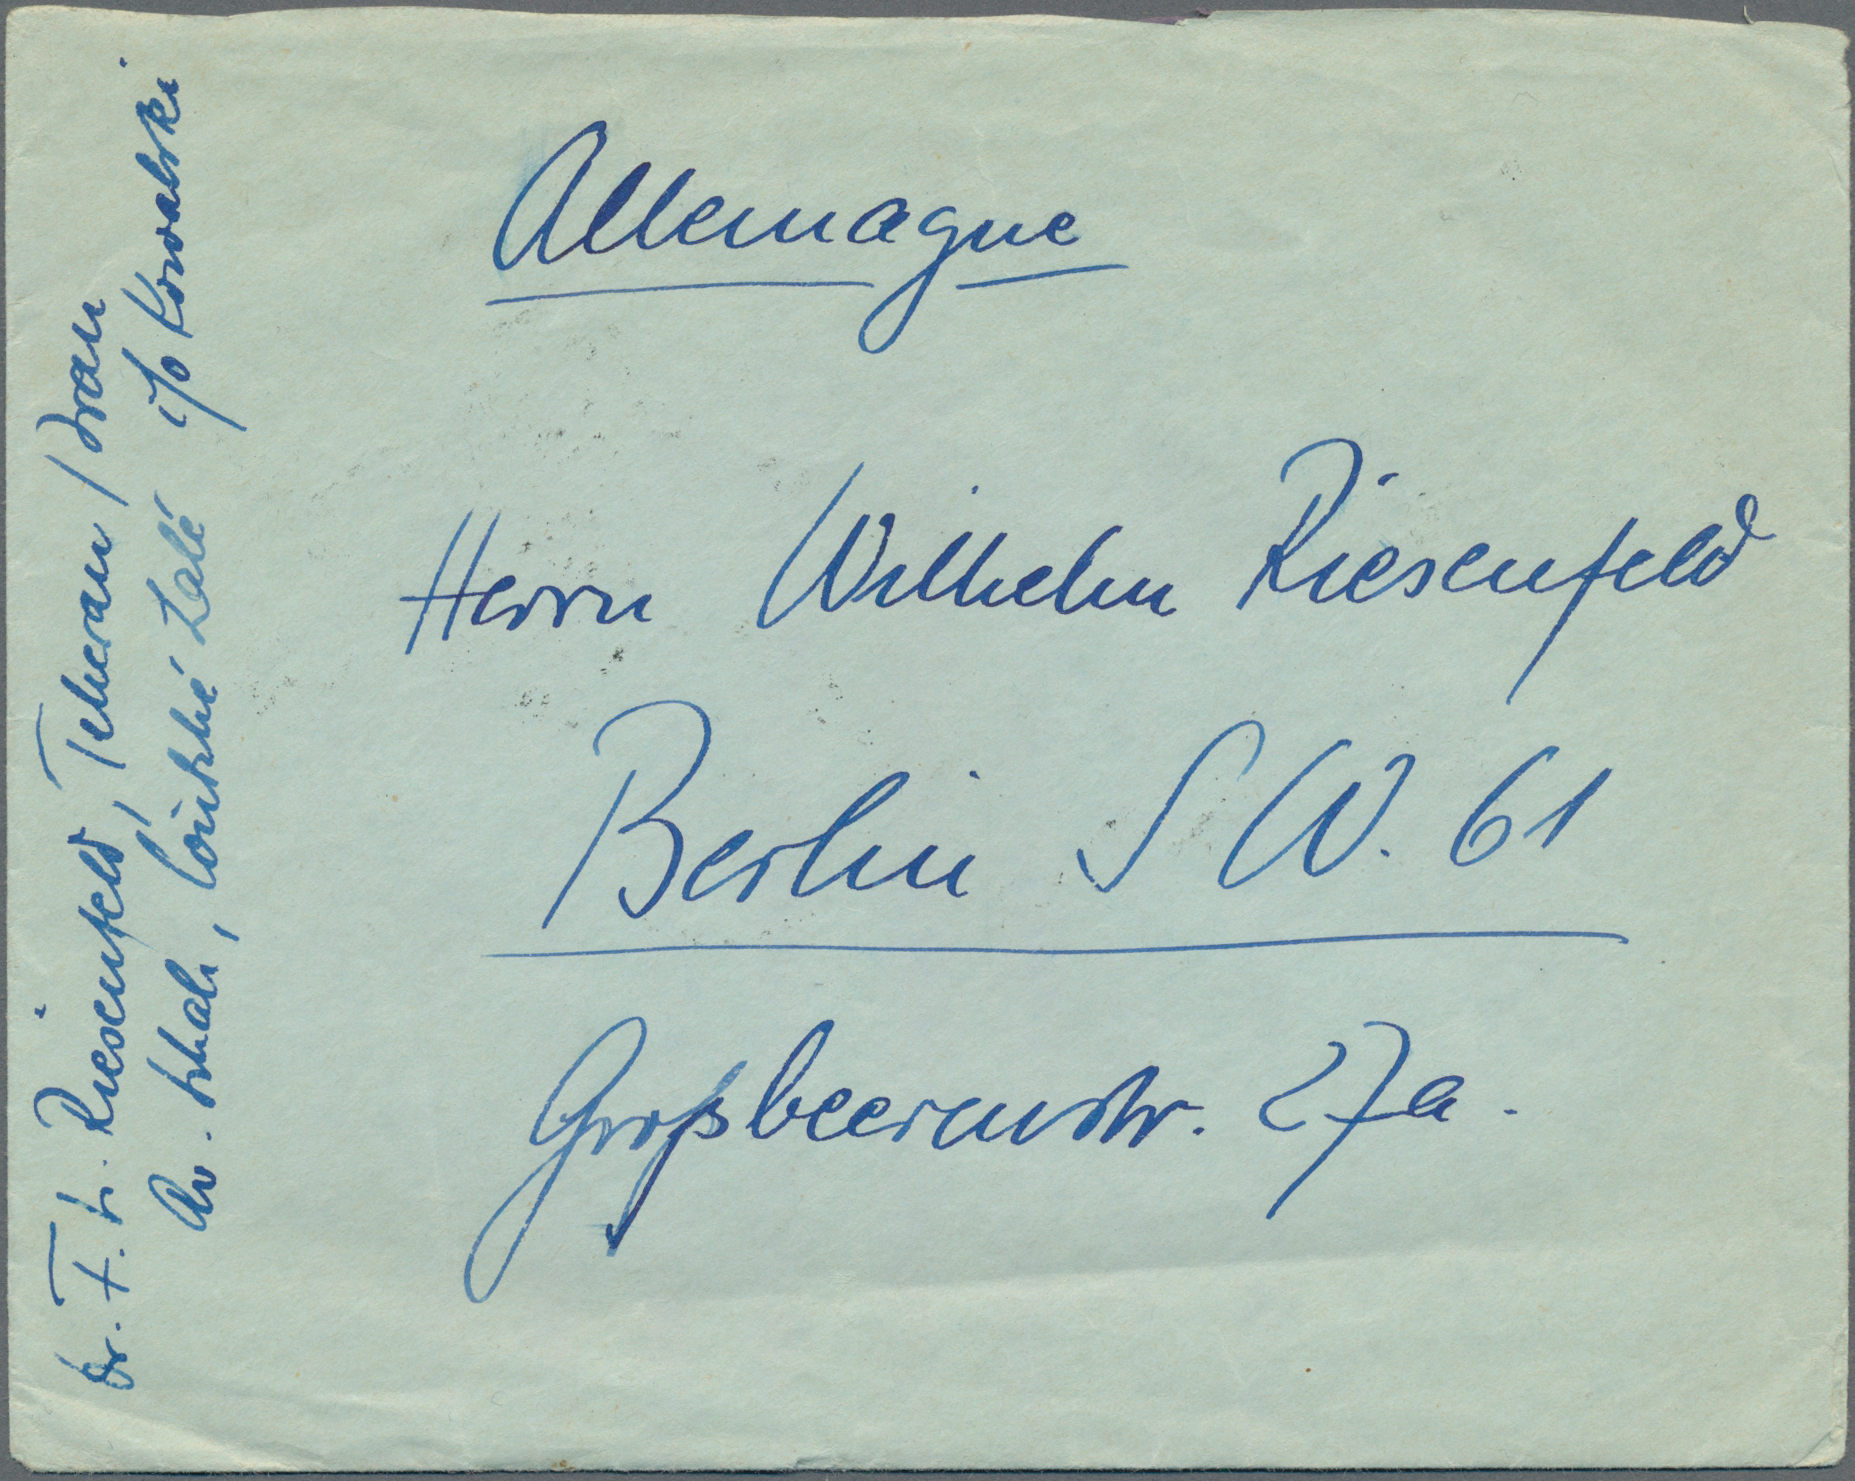 Allemagne
Herrn Wilhelm Riesenfeld
Berlin S W. 61
Großbeerenstr. 27a.
Dr. F. L. Riesenfeld, Teheran / Iran
Av. Lalé Kowalski